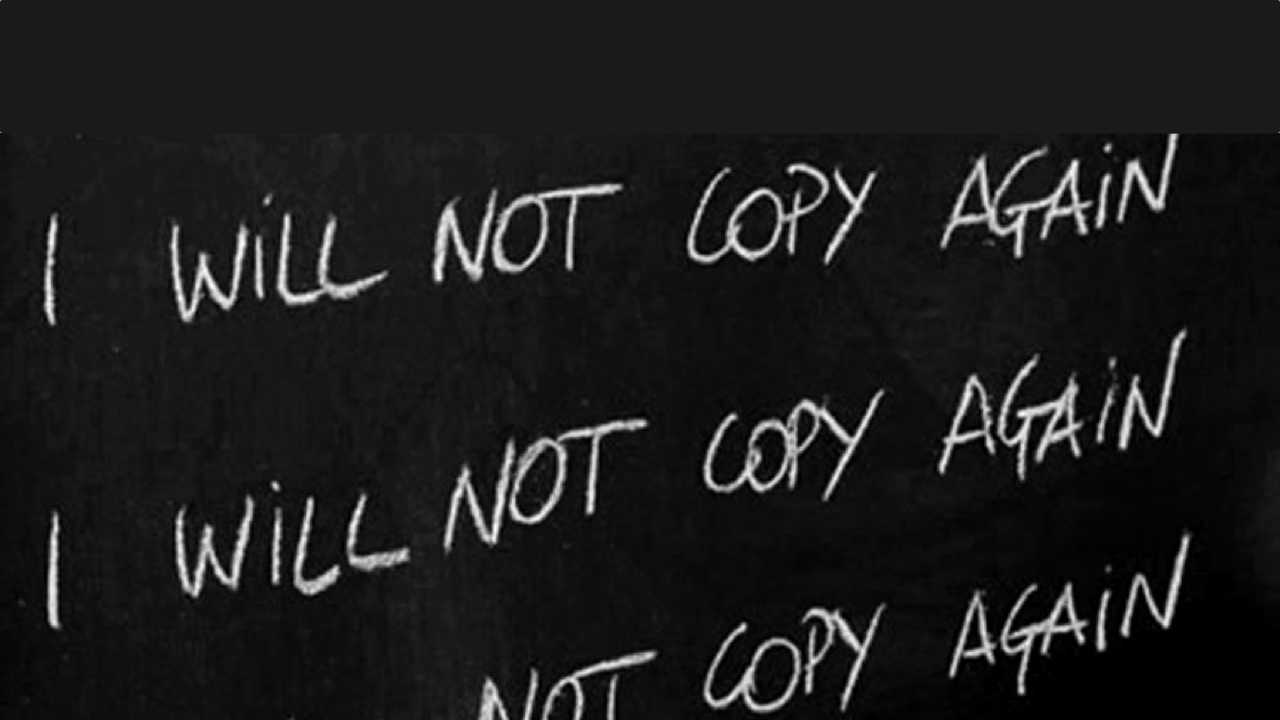 I WiLL NOT COPY AGAiN
I WiLL NOT COPY AGAiN
NOT COPY AGAiN